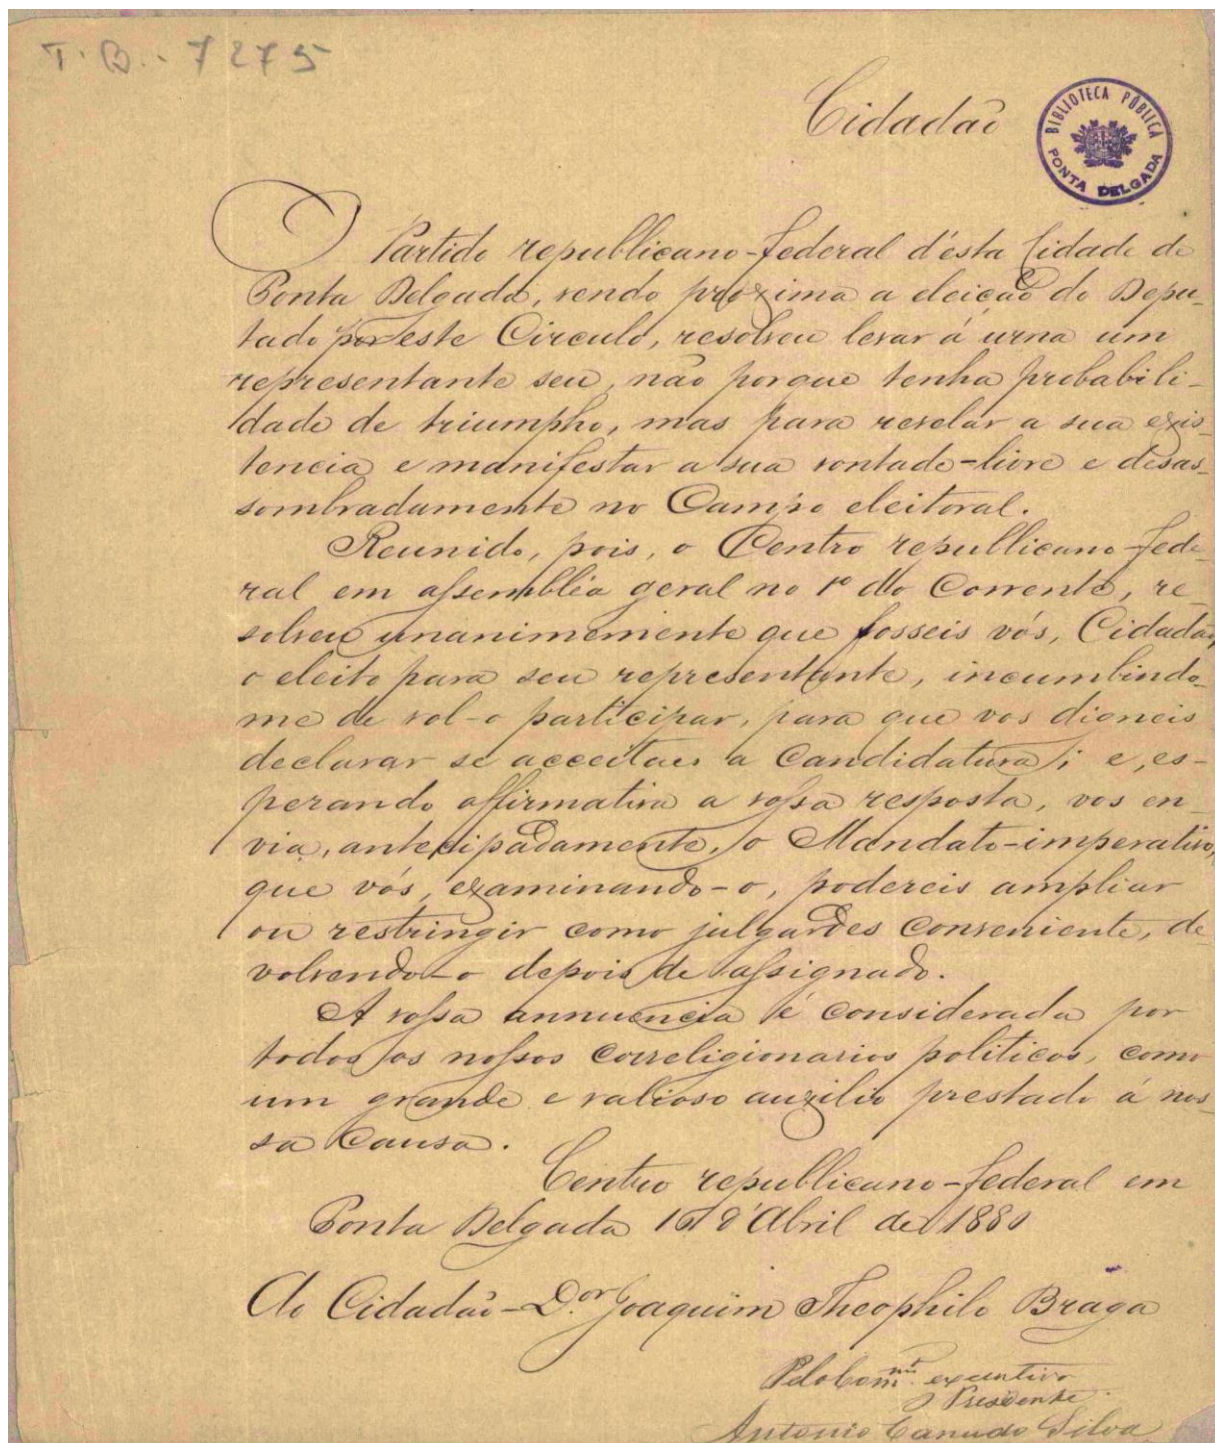 T. B. - 7275
Cidadão
BIBLIOTECA PÚBLICA
PONTA DELGADA
O Partido republicano-federal d'ésta Cidade de
Ponta Delgada, sendo proxima a eleição do Depu-
tado por este Circulo, resolveu levar á urna um
representante seu, não porque tenha probabili-
dade de triumpho, mas para revelar a sua exis-
tencia e manifestar a sua vontade-livre e desas-
sombradamente no Campo eleitoral.
Reunido, pois, o Centro republicano-fede-
ral em assembléa geral no 1º do Corrente, re-
solveu unanimemente que fosseis vós, Cidadão,
o eleito para seu representante, incumbindo-
me de vol-o participar, para que vos digneis
declarar se acceitaes a Candidatura; e, es-
perando affirmativa a vossa resposta, vos en-
via, antecipadamente, o Mandato-imperativo,
que vós, examinando-o, podereis ampliar
ou restringir como julgardes conveniente, de
volvendo-o depois de assignado.
A vossa annuencia é considerada por
todos os nossos correligionarios politicos, como
um grande e valioso auxilio prestado á nos-
sa Causa.
Centro republicano-federal em
Ponta Delgada 16 d'Abril de 1880
Ao Cidadão-D.or Joaquim Theophilo Braga
executivo
O Presidente
Antonio Canudo Silva